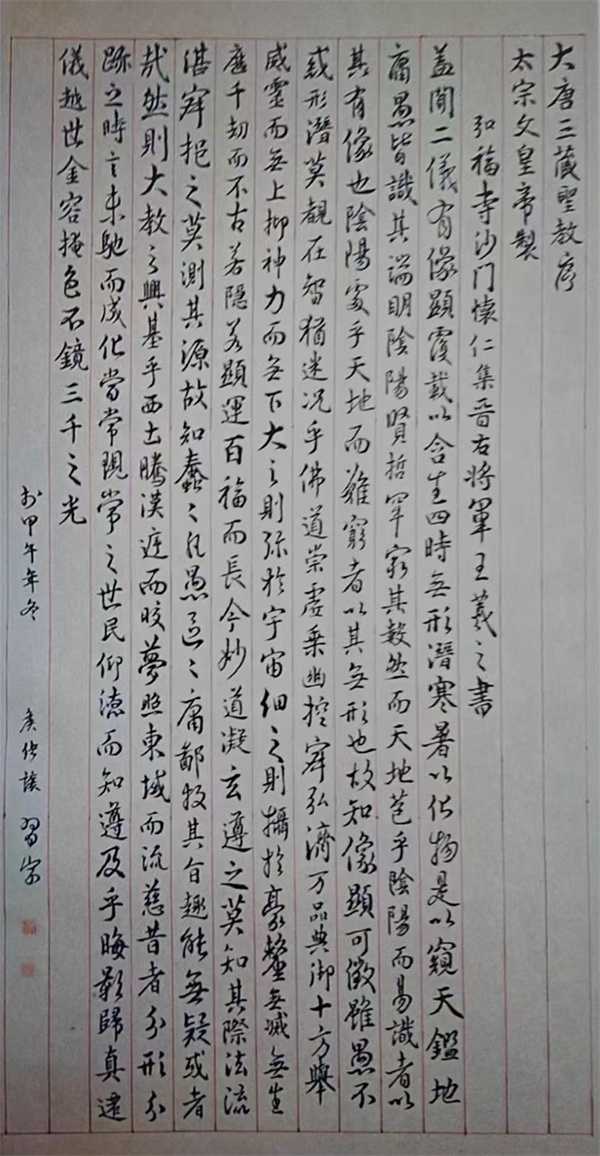 大唐三藏聖教序
太宗文皇帝製
弘福寺沙門懷仁集晉右將軍王羲之書
蓋聞二儀有像顯覆載以含生四時無形潛寒暑以化物是以窺天鑑地
庸愚皆識其端明陰陽賢哲罕窮其數然而天地苞乎陰陽而易識者以
其有像也陰陽處乎天地而難窮者以其無形也故知像顯可徵雖愚不
惑形潛莫覩在智猶迷況乎佛道崇虛乘幽控寂弘濟万品典御十方舉
威靈而無上抑神力而無下大之則彌於宇宙細之則攝於豪釐無滅無生
歷千劫而不古若隱若顯運百福而長今妙道凝玄遵之莫知其際法流
湛寂挹之莫測其源故知蠢々凡愚區々庸鄙投其旨趣能無疑或者
哉然則大教之興基乎西土騰漢庭而皎夢照東域而流慈昔者分形分
跡之時言未馳而成化當常現常之世民仰德而知遵及乎晦影歸真遷
儀越世金容掩色不鏡三千之光
於甲午年冬 習字